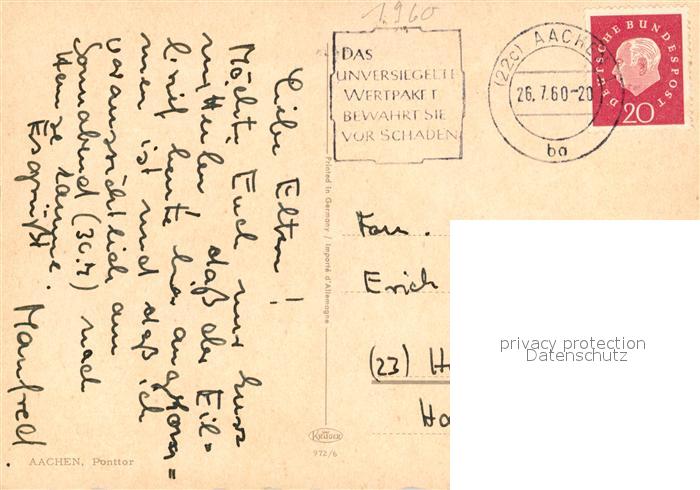 1.960
DAS
UNVERSIEGELTE
WERTPAKET
BEWAHRT SIE
VOR SCHADEN
(22c) AACHEN
26.7.60-20
ba
DEUTSCHE BUNDESPOST
20
Liebe Eltern!
Möchte Euch nur kurz
mitteilen daß der Eil=
brief heute hier angekom=
men ist und daß ich
voraussichtlich am
Sonnabend (30.7) nach
Hause komme.
Es grüßt
Manfred.
Fam.
Erich
(23) H
Ha
privacy protection
Datenschutz
Printed in Germany / Importé d'Allemagne
KRÜGER
972/6
AACHEN, Ponttor